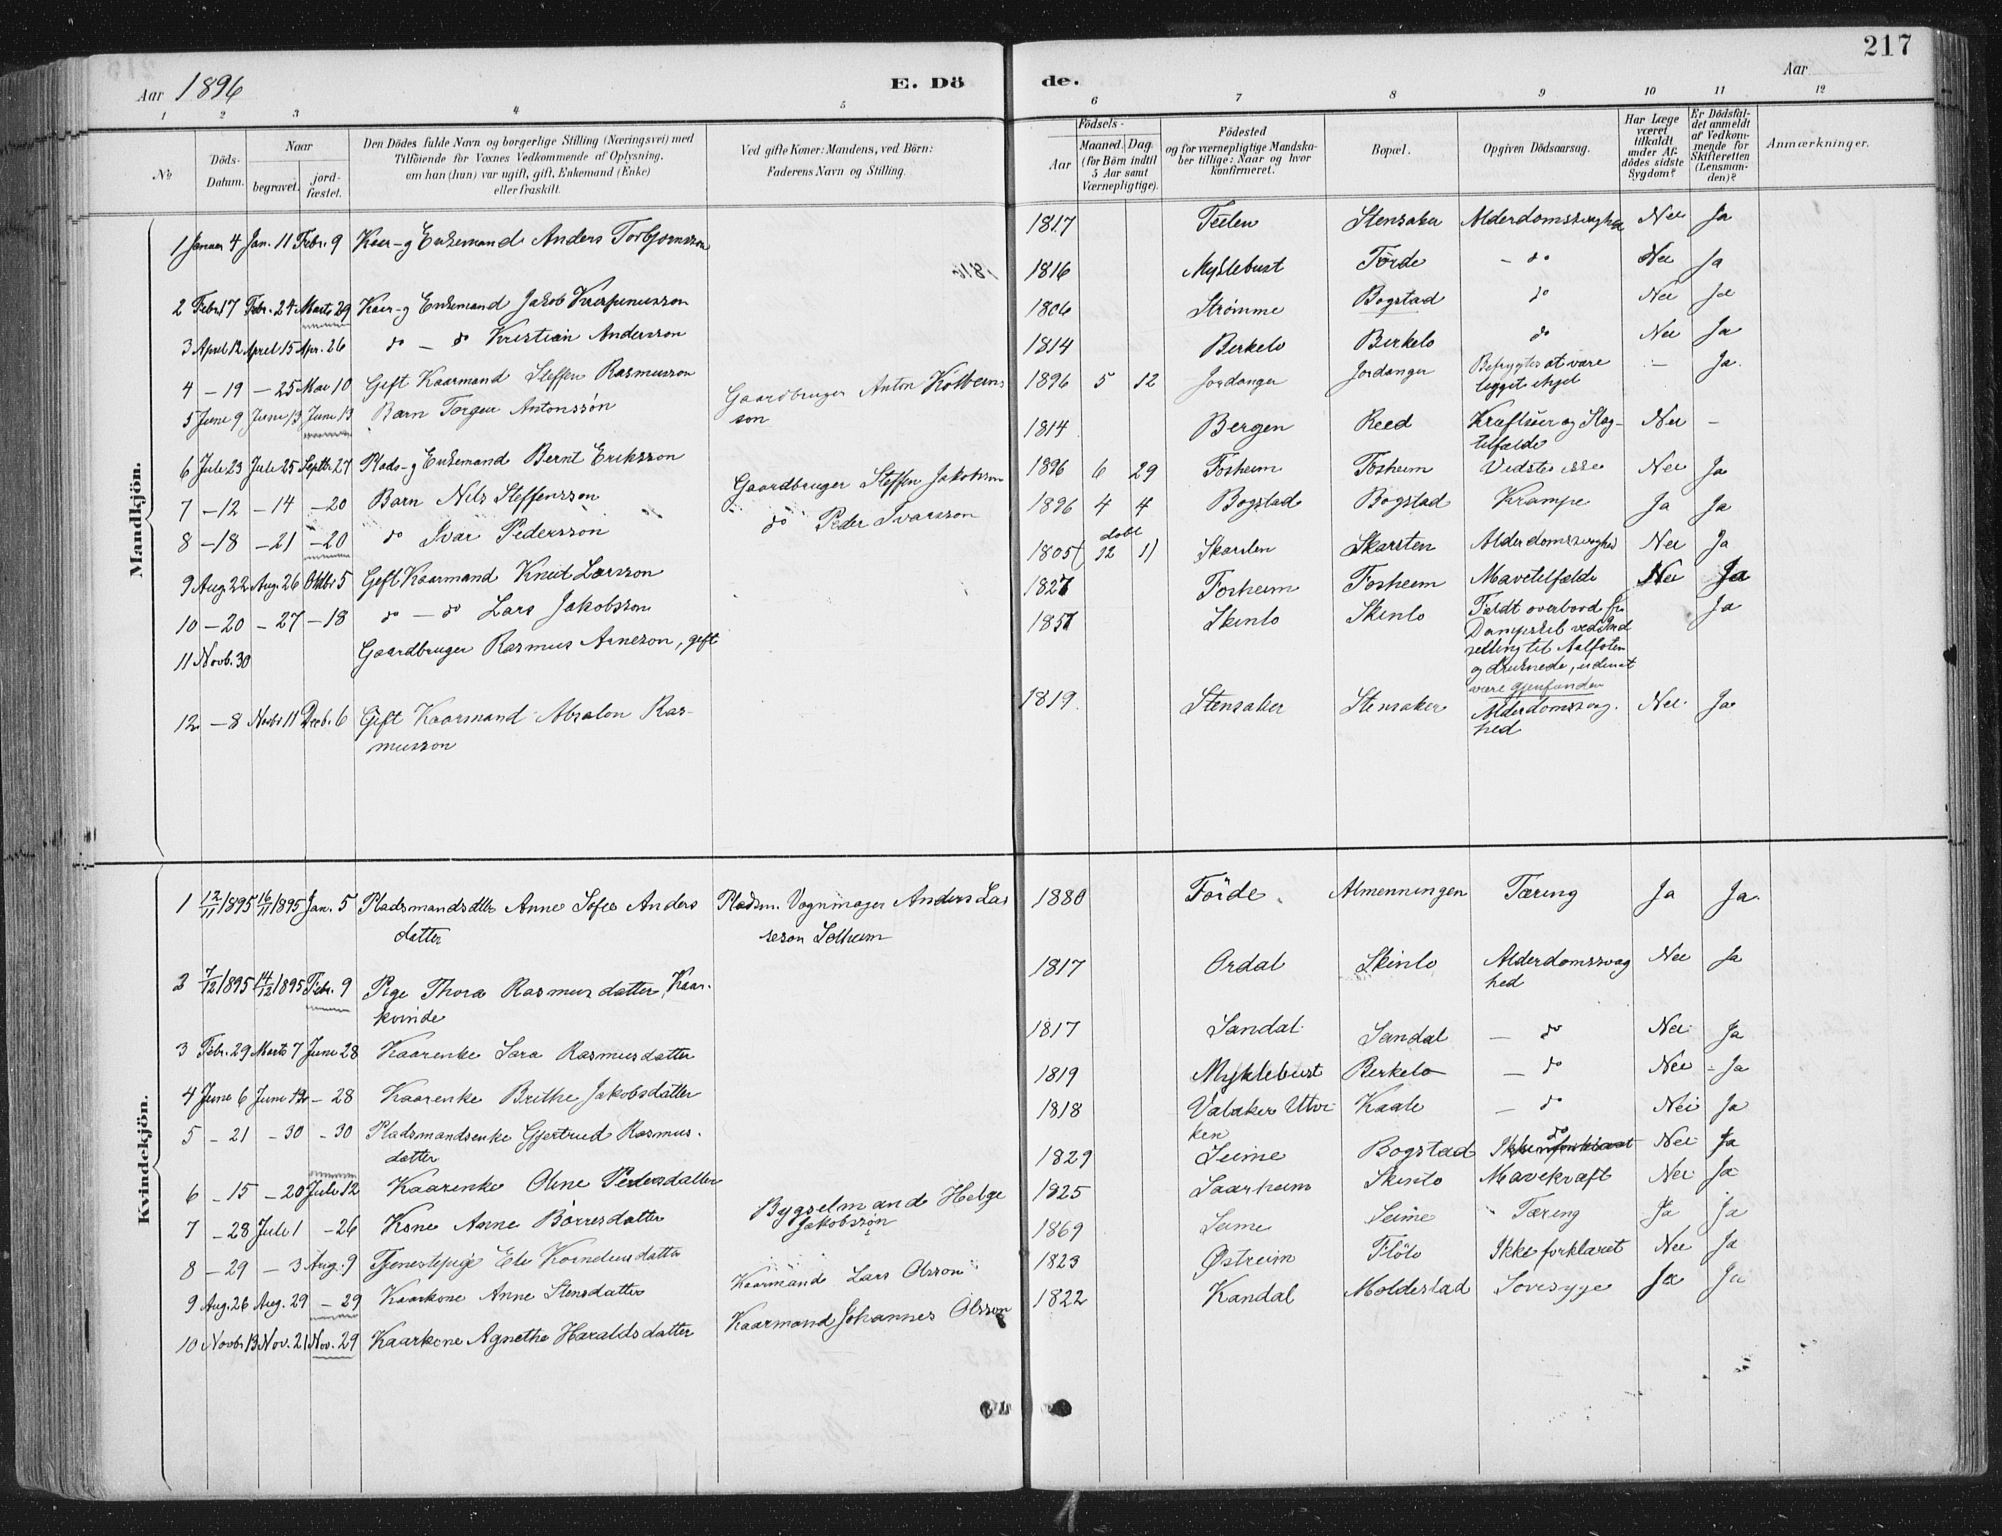 217
Aar 1896
E. Dö de.
Aar
1 2 3 4 5 6 7 8 9 10 11 12
No
Döds-
Datum.
Naar
begravet.
jord-
fæstet.
Den Dödes fulde Navn og borgerlige Stilling (Næringsvei) med
Tilföiende for Voxnes Vedkommende af Oplysning,
om han (hun) var ugift, gift, Enkemand (Enke)
eller fraskilt.
Ved gifte Koner: Mandens, ved Börn:
Faderens Navn og Stilling.
Födsels-
Aar
Maaned. Dag.
(for Börn indtil
5 Aar samt
Værnepligtige).
Födested
og for værnepligtige Mandska-
ber tillige: Naar og hvor
konfirmeret.
Bopæl.
Opgiven Dödsaarsag.
Har Læge
været
tilkaldt
under Af-
dödes sidste
Sygdom?
Er Dödsfal-
det anmeldt
af Vedkom-
mende for
Skifteretten
(Lensman-
den)?
Anmærkninger.
Mandkjön.
1 Januar 4 Jan. 11 Febr. 9 Kaar- og Enkemand Anders Torbjørnsson 1817 Teilen Stensaker Alderdomssvaghed Nei Ja
2 Febr 17 Febr. 24 Marts 29 Kaar- og Enkemand Jakob 1816 Myklebust Førde – do Nei Ja
3 April 12 April 15 Apr. 26 do – do Kristian Andersson 1806 Strømme Bogstad do Nei Ja
4 – 19 – 25 Mai 10 Gift Kaarmand Steffen Rasmusson 1814 Berkelo Berkelo do Nei Ja
5 June 9 June 13 June 13 Barn Torger Antonssøn Gaardbruger Anton Kolbeins
son 1896 5 12 Jordanger Jordanger Befrygtes at være
legget ihjel – Ja.
6 Juli 23 Juli 25 Septbr. 27 Plads- og Enkemand Bernt Eriksson 1814 Bergen Reed Kræftsaar og Slag-
tilfælde Nei –
7 – 12 – 14 – 20 Barn Nils Steffensson Gaardbruger Steffen Jakobsson 1896 6 29 Fosheim Fosheim Nei Ja
8 – 18 – 21 – 20 do Ivar Pedersson do Peder Ivarsson 1896 4 4 Bogstad Bogstad Krampe Ja Ja
9 Aug 22 Aug. 26 Oktbr 5 Gift Kaarmand Knut Larsson 1805 ( døbt
12 1) Skarsten Skarsten Alderdomssvaghed Nei Ja
10 – 20 – 27 – 18 do – do Lars Jakobsson 1827 Fosheim Fosheim Mavetilfælde Nei Ja
11 Novb. 30 Gaardbruger Rasmus Arneson, gift 1857 Skinlo Skinlo Faldt overbord fra
Dampskib ved Ind
seiling til Aalfoten
og druknede, uden at
være gjenfunden Ja
12 – 8 Novbr 11 Decb. 6 Gift Kaarmand Absalon Ras-
musson 1819 Stensaker Stensaker Alderdomssvag-
hed Nei Ja
Kvindekjön.
1 12/11 1895 16/11 1895 Jan. 5 Pladsmandsdtter Anne Sofie Anders
datter Pladsm. Vognmager Anders Las
seson Solheim 1880 Förde Almenningen Tæring Ja Ja.
2 7/12 1895 14/12 1895 Febr. 9 Pige Thora Rasmusdatter, Kaar-
kvinde 1817 Ordal Skinlo Alderdomssvag
hed Nei Ja
3 Febr. 29 Marts 7 June 28 Kaarenke Sara Rasmusdatter 1817 Sandal Sandal – do Nei Ja
4 June 6 Juni 12 – 28 Kaarenke Brithe Jakobsdatter 1819 Myklebust Berkelo – do Nei Ja
5 – 21 – 30 – 30 Pladsmandsenke Gjertrud Rasmus-
datter 1818 Valaker Utvi
ken Kaale – do Nei Ja
6 – 15 – 20 Juli 12 Kaarenke Oline Pedersdatter 1829 Seime Bogstad do Nei Ja
7 – 28 Juli 1 – 26 Kone Anne Børresdatter Bygselmand Helge
Jakobssøn 1825 Saarheim Skinlo Mavekræft Nei Ja
8 – 29 – 3 Aug. 9 Tjenestepige Eli Korneliusdatter 1869 Seime Seime Tæring Ja Ja
9 Aug. 26 Aug. 29 – 29 Kaarkone Anne Stensdatter Kaarmand Lars Olsson 1823 Østreim Flölo Ikke forklaret Nei Ja
10 Novbr 13 Nov. 21 Nov. 29 Kaarkone Agnethe Haraldsdatter Kaarmand Johannes Olsson 1822 Kandal Moldestad Sovesyge Ja Ja